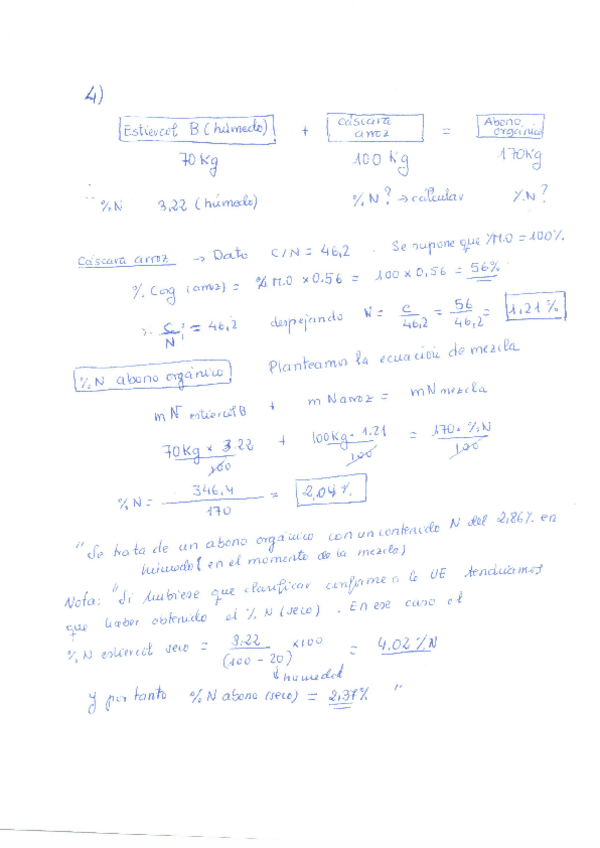 4)
Estiercol B (húmedo) + Cáscara arroz = Abono orgánico
70 Kg 100 Kg 170 Kg
%N 3,22 (húmedo) %N? → calcular %N?
Cáscara arroz → Dato C/N = 46,2 . Se supone que %M.O = 100%.
% Corg (arroz) = % M.O × 0.56 = 100 × 0,56 = 56%
C/N = 46,2 despejando N = C/46,2 = 56/46,2 = 1,21 %
%N abono orgánico Planteamos la ecuación de mezcla
mN estiercol B + mN arroz = mN mezcla
70 Kg × 3.22/100 + 100 Kg · 1.21/100 = 170 · %N/100
%N = 346,4/170 = 2,04 %
"Se trata de un abono orgánico con un contenido N del 2,86% en
húmedo (en el momento de la mezcla)
Nota: "Si hubiese que clarificar conforme a la UE tendríamos
que haber obtenido el % N (seco) . En ese caso el
%N estiercol seco = 3.22/(100 - 20) × 100 = 4,02 % N
↓ humedad
y por tanto %N abono (seco) = 2,37% "